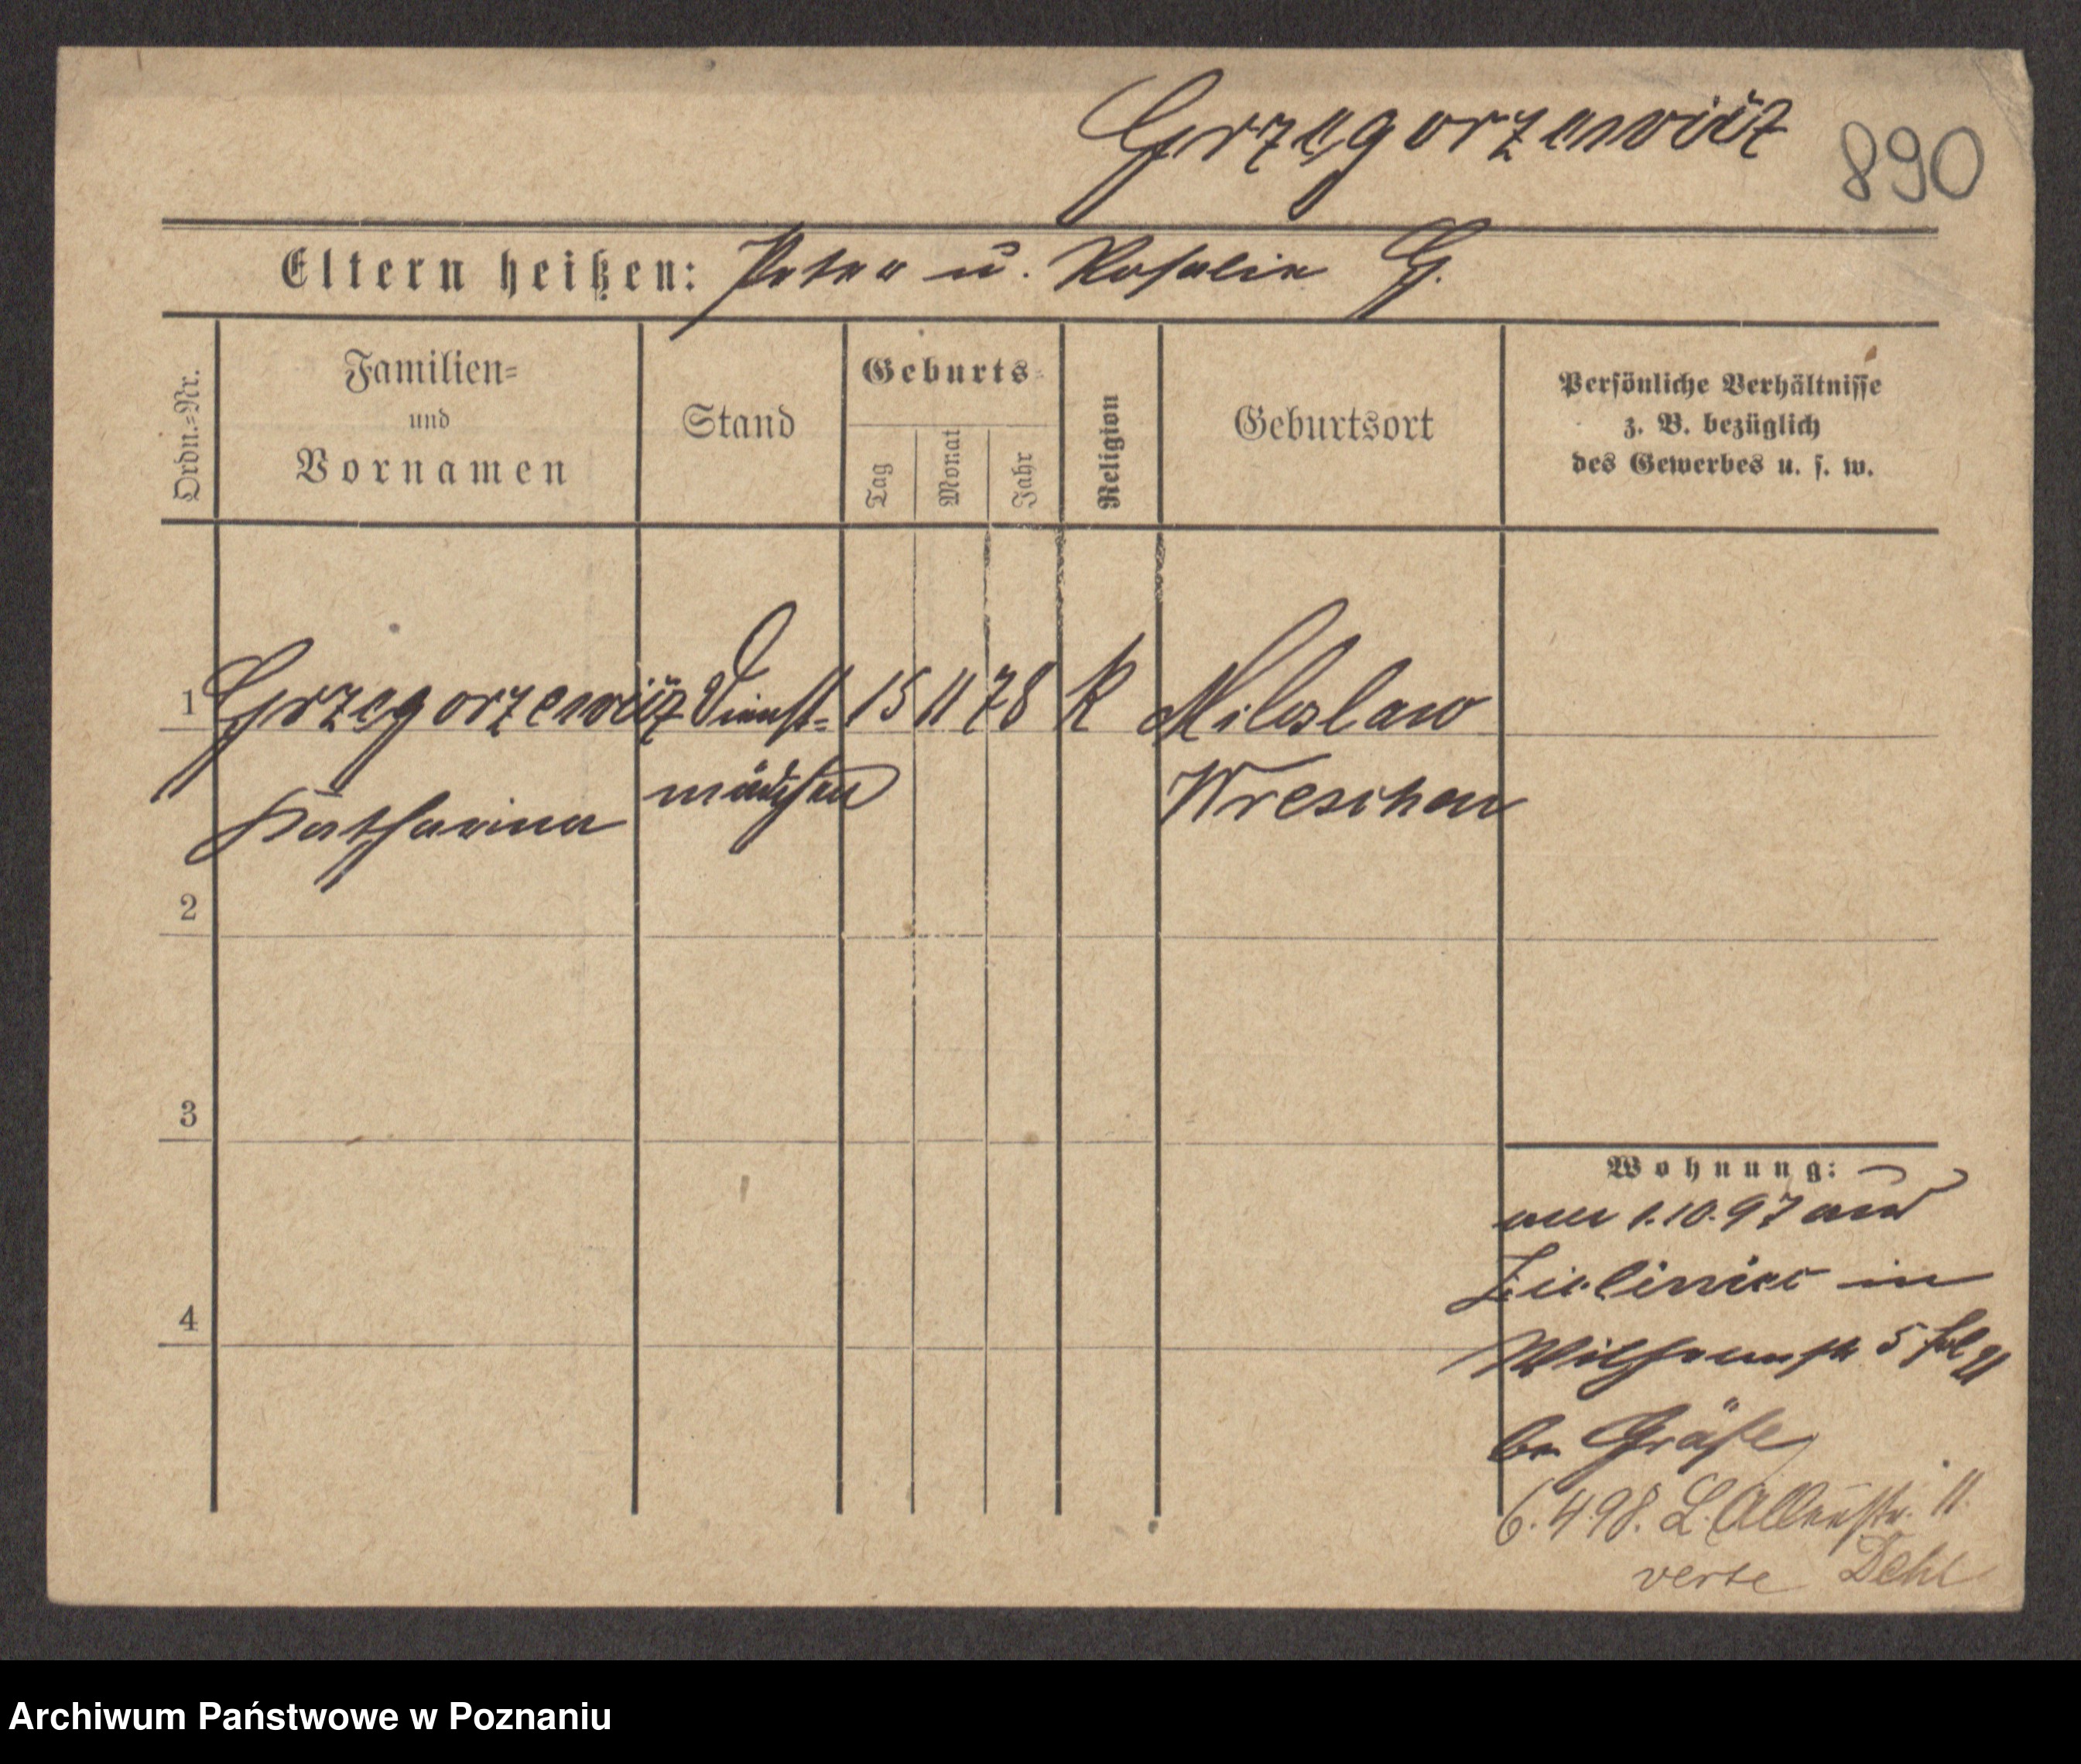 Grzegorzewicz 890
Eltern heißen: Peter u. Rosalie G.
Ordn.=Nr.
Familien=
und
Vornamen
Stand
Geburts=
Tag
Monat
Jahr
Religion
Geburtsort
Persönliche Verhältnisse
z. B. bezüglich
des Gewerbes u. s. w.
1 Grzegorzewicz Dienst= 15 11 78 K Miloslaw
Katharina mädchen Wreschen
2
3
4
Wohnung:
am 1.10.97 aus
Zieliniec in
Wilhelmstr 5
bei Gräfe
6.4.98. L. Allerstr. 11.
verte Dehl
Archiwum Państwowe w Poznaniu